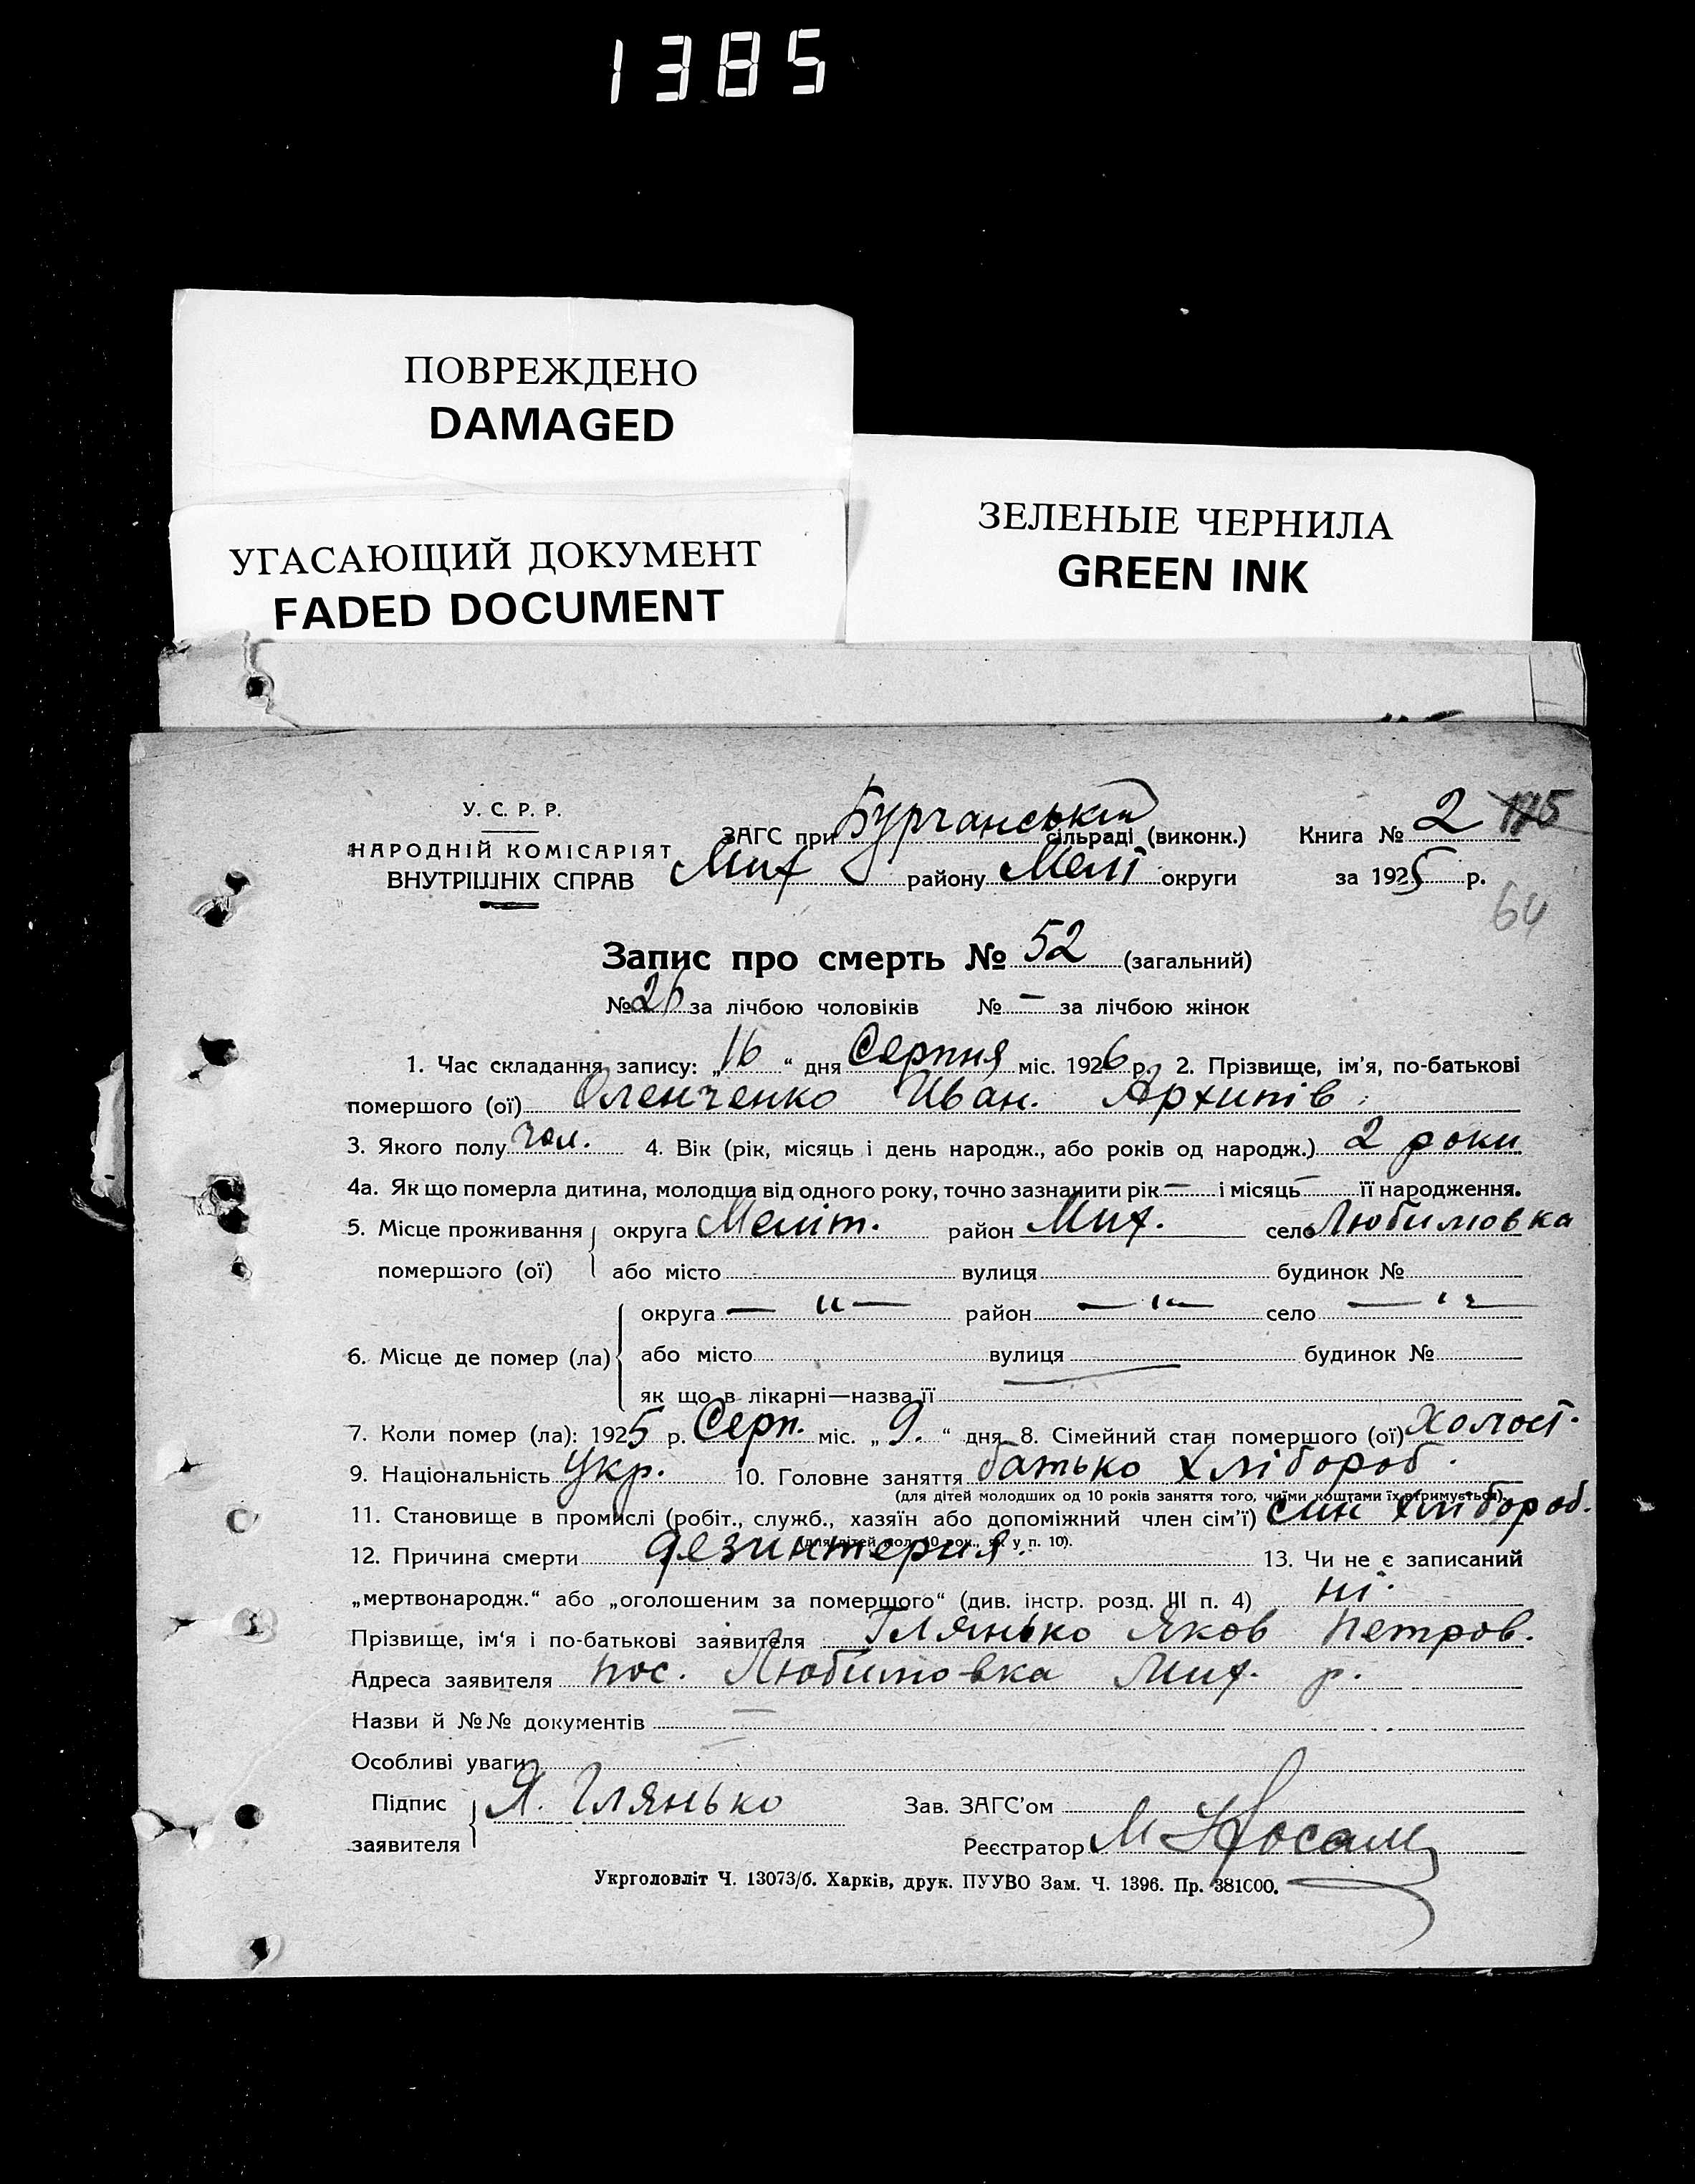 1385
ПОВРЕЖДЕНО
DAMAGED
УГАСАЮЩИЙ ДОКУМЕНТ
FADED DOCUMENT
ЗЕЛЕНЫЕ ЧЕРНИЛА
GREEN INK
У. С. Р. Р.
НАРОДНІЙ КОМІСАРІЯТ
ВНУТРІШНІХ СПРАВ
ЗАГС при Бурчанській сільраді (виконк.)
Мих району Мелі округи
Книга № 2 175
за 1925 р.
64
Запис про смерть № 52 (загальний)
№ 26 за лічбою чоловіків № — за лічбою жінок
1. Час складання запису: „16“ дня Серпня міс. 1926 р. 2. Прізвище, ім'я, по-батькові
помершого (ої) Оленченко Иван. Архипів.
3. Якого полу чол. 4. Вік (рік, місяць і день народж., або років од народж.) 2 роки
4а. Як що померла дитина, молодша від одного року, точно зазначити рік — і місяць — її народження.
5. Місце проживання округа Меліт. район Мих. село Любимовка
помершого (ої) або місто вулиця будинок №
округа — „ — район — „ — село — „ —
6. Місце де помер (ла) або місто вулиця будинок №
як що в лікарні—назва її
7. Коли помер (ла): 1925 р. Серп. міс. „9.“ дня 8. Сімейний стан помершого (ої) Холост.
9. Національність Укр. 10. Головне заняття батько хлібороб.
(для дітей молодших од 10 років заняття того, чиїми коштами їх втримується).
11. Становище в промислі (робіт., служб., хазяїн або допоміжний член сім'ї) син хлібороб.
(для дітей мол. 10 рок., як у п. 10).
12. Причина смерти дезинтерия. 13. Чи не є записаний
„мертвонародж.“ або „оголошеним за померщого“ (див. інстр. розд. III п. 4) ні.
Прізвище, ім'я і по-батькові заявителя Глянько Яков Петров.
Адреса заявителя пос. Любимовка Мих. р.
Назви й №№ документів —
Особливі уваги
Підпис заявителя Я. Глянько
Зав. ЗАГС'ом
Реєстратор М
Укрголовліт Ч. 13073/б. Харків, друк. ПУУВО Зам. Ч. 1396. Пр. 381С00.